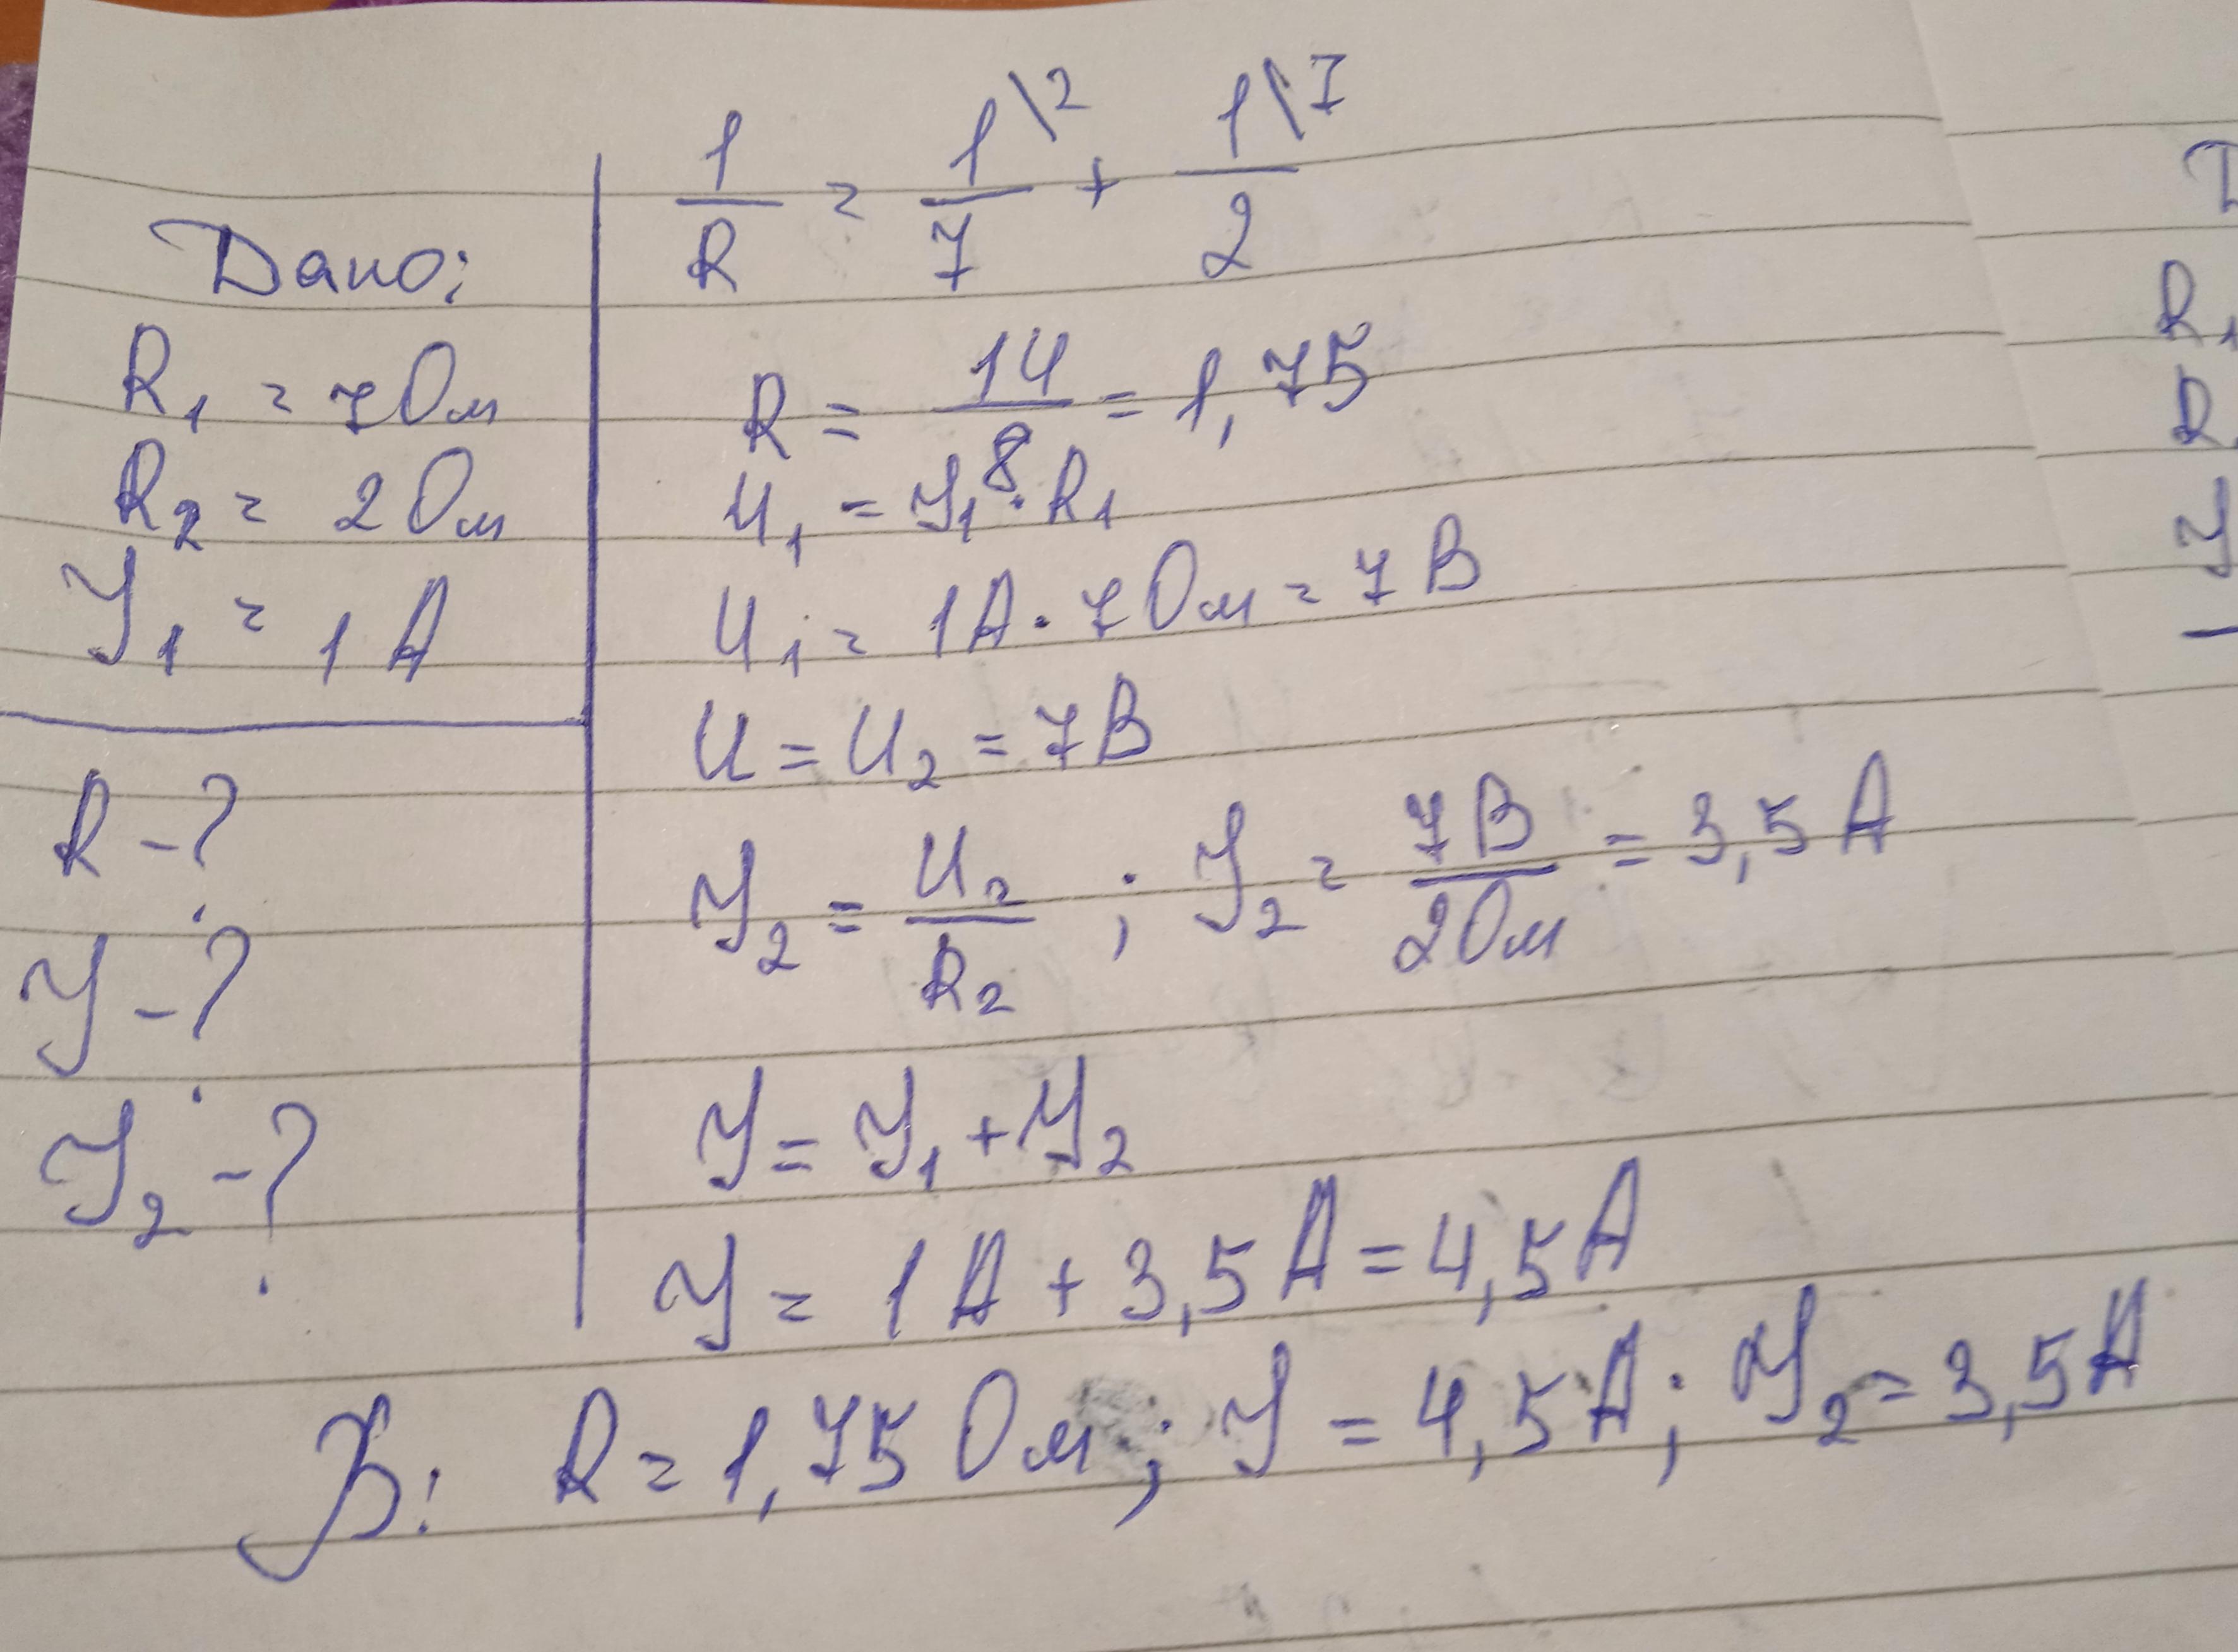 Дано:
R₁ = 7 Ом
R₂ = 2 Ом
I₁ = 1 А
R - ?
I - ?
I₂ - ?
1/R = 1\2/7 + 1\7/2
R = 14/8 = 1,75
U₁ = I₁ · R₁
U₁ = 1А · 7 Ом = 7 В
U = U₂ = 7В
I₂ = U₂/R₂ ; I₂ = 7В/2Ом = 3,5 А
I = I₁ + I₂
I = 1А + 3,5А = 4,5А
В: R = 1,75 Ом ; I = 4,5А; I₂ = 3,5А
R₁
R
I